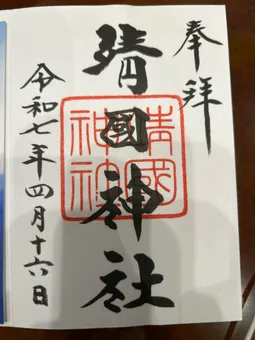 奉拝
靖國神社
靖國
神社
令和七年四月十六日